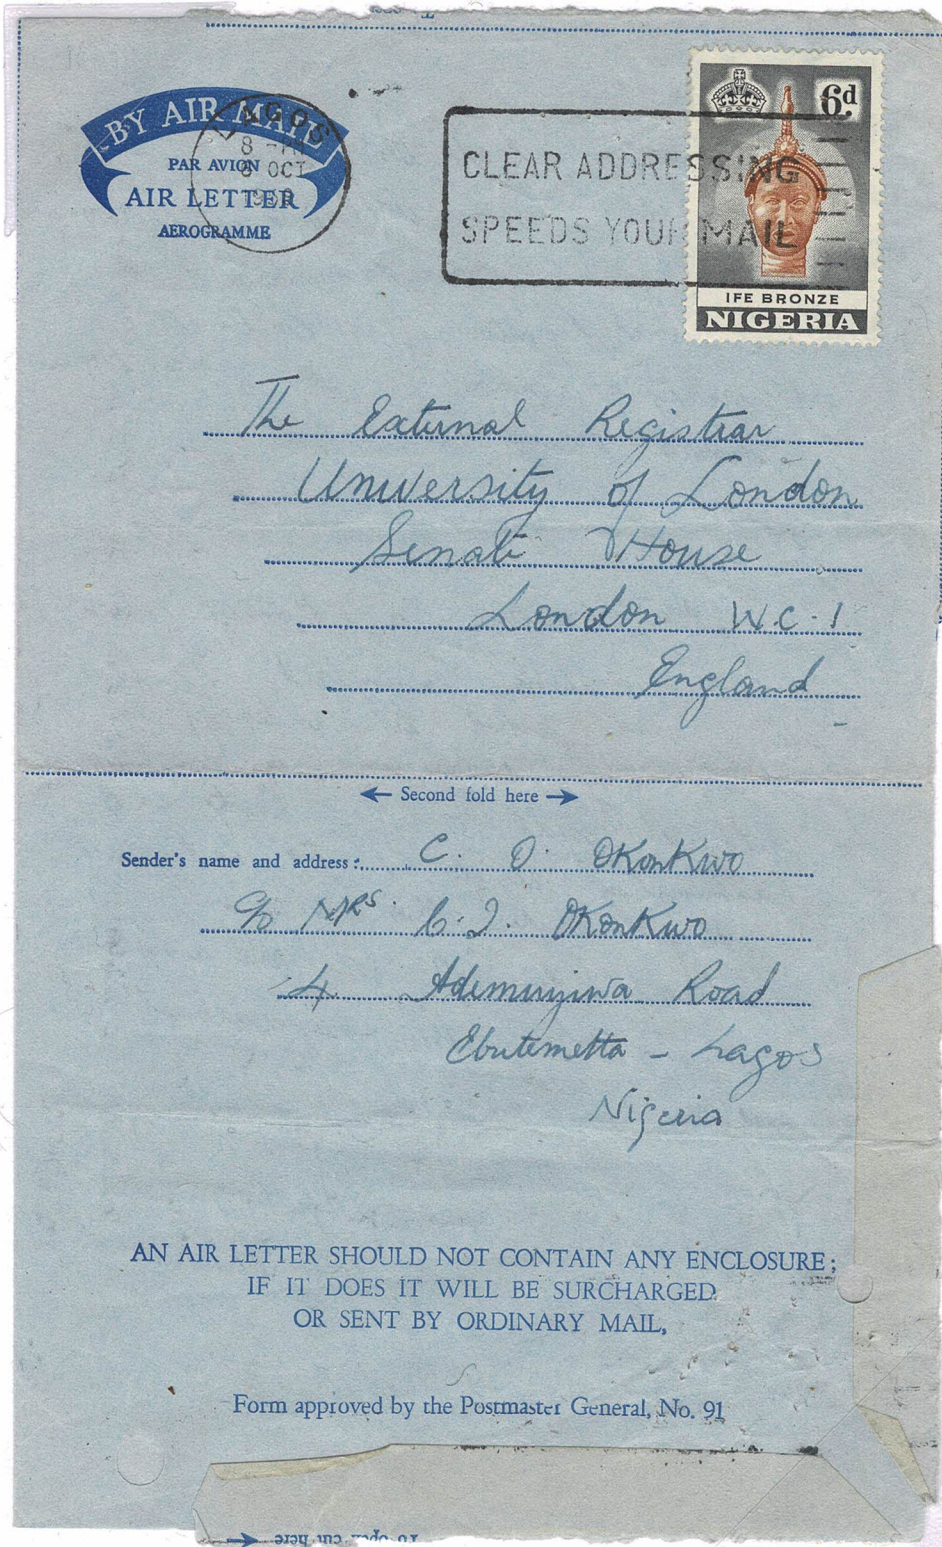 BY AIR MAIL
PAR AVION
AIR LETTER
AEROGRAMME
LAGOS
8 - PM
8 OCT
CLEAR ADDRESSING
SPEEDS YOUR MAIL
6d
IFE BRONZE
NIGERIA
The External Registrar
University of London
Senate House
London W.C.1
England
← Second fold here →
Sender's name and address: C. O. Okonkwo
c/o Mrs. C. I. Okonkwo
4 Ademuyiwa Road
Ebutemetta - Lagos
Nigeria
AN AIR LETTER SHOULD NOT CONTAIN ANY ENCLOSURE;
IF IT DOES IT WILL BE SURCHARGED
OR SENT BY ORDINARY MAIL.
Form approved by the Postmaster General, No. 91
To open cut here →